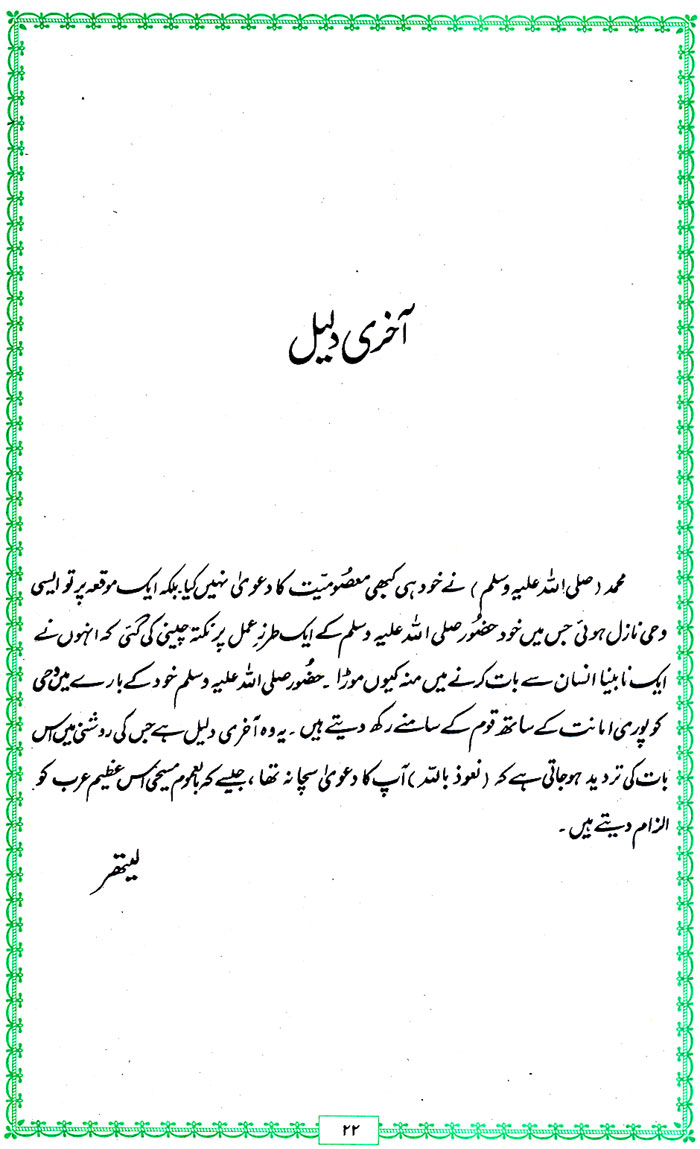 آخری دلیل
محمد (صلی اللہ علیہ وسلم) نے خود ہی کبھی معصومیّت کا دعویٰ نہیں کیا بلکہ ایک موقعہ پر تو ایسی
وحی نازل ہوئی جس میں خود حضُور صلی اللہ علیہ وسلم کے ایک طرزِ عمل پر نکتہ چینی کی گئی کہ انہوں نے
ایک نابینا انسان سے بات کرنے میں منہ کیوں موڑا۔ حضُور صلی اللہ علیہ وسلم خود کے بارے میں وحی
کو پوری امانت کے ساتھ قوم کے سامنے رکھ دیتے ہیں۔ یہ وہ آخری دلیل ہے جس کی روشنی میں اس
بات کی تردید ہو جاتی ہے کہ (نعوذ باللہ) آپ کا دعویٰ سچا نہ تھا، جیسے کہ بالعموم مسیحی اس عظیم عرب کو
الزام دیتے ہیں۔
لیتھر
۲۲